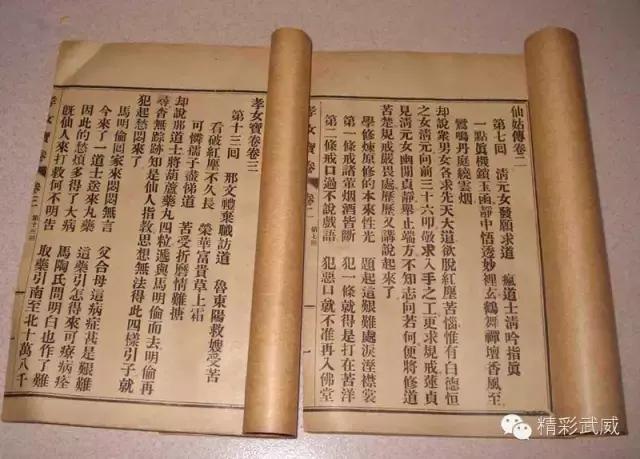 仙姑傳卷二
第七回 清元女發願求道 瘋道士清吟指眞
一點眞機鎖玉函靜中悟透妙裡玄鶴舞禪壇香風至
鸞鳴丹庭繞雲烟
却說衆男女各求先天大道欲脫紅塵苦惱惟有白德恒
之女清元向前三十六叩敬求入手之工更求規戒蓮貞
見清元女幽閒貞靜舉止端方不知志向若何便將修道
苦楚規戒嚴畏處歷歷又講說起來了
學修煉原修的本來性光 題起這艱難處淚溼襟裳
第一條戒諸葷烟酒皆斷 犯一條就得是打在苦洋
第二條戒口過不說戲語 犯惡口就不准再入佛堂
孝女寶卷 卷二 第七回
孝女寶卷卷三
第十三回 那文禮棄職訪道 魯東陽救嫂受苦
看破紅塵不久長 榮華富貴草上霜
可憐孺子盡悌道 苦受折磨情難搪
却說那道士將葫蘆藥丸四粒遞與馬明倫而去明倫再
尋杳無踪跡知是仙人指教思想無法得此四樣引子就
犯起愁悶來了
馬明倫回家來悶悶無言 父合母這病症甚是艱難
今來了一道士送來丸藥 這藥引怎得來可療病痊
因此的愁煩多得了大病 馬陶氏問明白也作了難
旣仙人來打救何不明告 取藥引南至北十萬八千
孝女寶卷 卷三 第十三
精彩武威